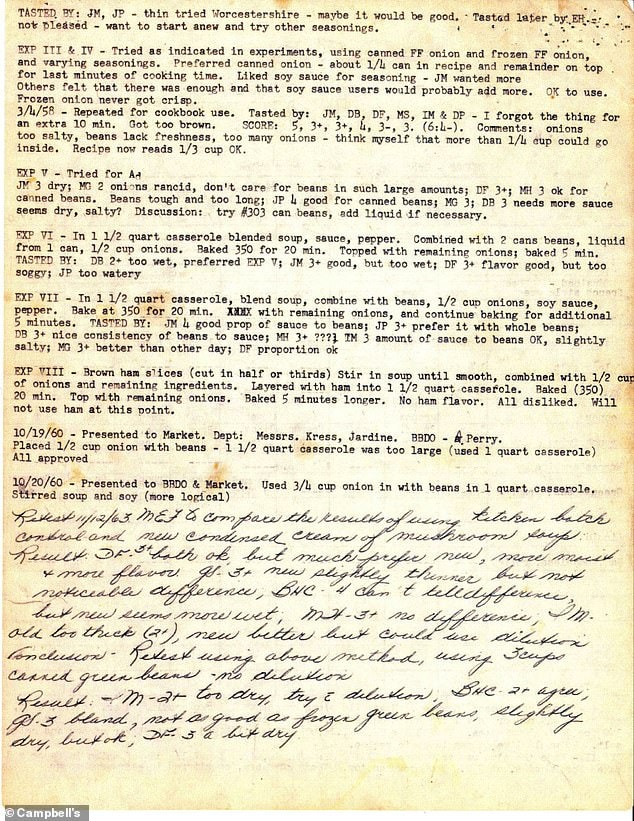 TASTED BY: JM, JP - thin tried Worcestershire - maybe it would be good. Tasted later by EH.
not pleased - want to start anew and try other seasonings.
EXP III & IV - Tried as indicated in experiments, using canned FF onion and frozen FF onion,
and varying seasonings. Preferred canned onion - about 1/4 can in recipe and remainder on top
for last minutes of cooking time. Liked soy sauce for seasoning - JM wanted more
Others felt that there was enough and that soy sauce users would probably add more. OK to use.
Frozen onion never got crisp.
3/4/58 - Repeated for cookbook use. Tasted by: JM, DB, DF, MS, IM & DP - I forgot the thing for
an extra 10 min. Got too brown. SCORE: 5, 3+, 3+, 4, 3-, 3. (6:4-). Comments: onions
too salty, beans lack freshness, too many onions - think myself that more than 1/4 cup could go
inside. Recipe now reads 1/3 cup OK.
EXP V - Tried for
JM 3 dry; MG 2 onions rancid, don't care for beans in such large amounts; DF 3+; MH 3 ok for
canned beans. Beans tough and too long; JP 4 good for canned beans; MG 3; DB 3 needs more sauce
seems dry, salty? Discussion: try #303 can beans, add liquid if necessary.
EXP VI - In 1 1/2 quart casserole blended soup, sauce, pepper. Combined with 2 cans beans, liquid
from 1 can, 1/2 cup onions. Baked 350 for 20 min. Topped with remaining onions; baked 5 min.
TASTED BY: DB 2+ too wet, preferred EXP V; JM 3+ good, but too wet; DF 3+ flavor good, but too
soggy; JP too watery
EXP VII - In 1 1/2 quart casserole, blend soup, combine with beans, 1/2 cup onions, soy sauce,
pepper. Bake at 350 for 20 min. XXXX with remaining onions, and continue baking for additional
5 minutes. TASTED BY: JM 4 good prop of sauce to beans; JP 3+ prefer it with whole beans;
DB 3+ nice consistency of beans to sauce; MH 3+ ???? IM 3 amount of sauce to beans OK, slightly
salty; MG 3+ better than other day; DF proportion ok
EXP VIII - Brown ham slices (cut in half or thirds) Stir in soup until smooth, combined with 1/2 cup
of onions and remaining ingredients. Layered with ham into 1 1/2 quart casserole. Baked (350)
20 min. Top with remaining onions. Baked 5 minutes longer. No ham flavor. All disliked. Will
not use ham at this point.
10/19/60 - Presented to Market. Dept: Messrs. Kress, Jardine. BBDO - A. Perry.
Placed 1/2 cup onion with beans - 1 1/2 quart casserole was too large (used 1 quart casserole)
All approved
10/20/60 - Presented to BBDO & Market. Used 3/4 cup onion in with beans in 1 quart casserole.
Stirred soup and soy (more logical)
Retest 11/12/63 MEJ to compare the results of using kitchen batch
control and new condensed cream of mushroom soup:
Result: DF-3+ both ok, but much prefer new, more moist
& more flavor. GJ-3+ new slightly thinner but not
noticeable difference, BHC-4 can't tell difference,
but new seems more wet, MH-3+ no difference, IM-
old too thick (2+), new better but could use dilution
Conclusion - Retest using above method, using 3 cups
canned green beans - no dilution
Result: - IM-2+ too dry, try c dilution, BHC-2+ agree,
GJ-3 bland, not as good as frozen green beans, slightly
dry, but ok, DF-3 a bit dry
© Campbell's